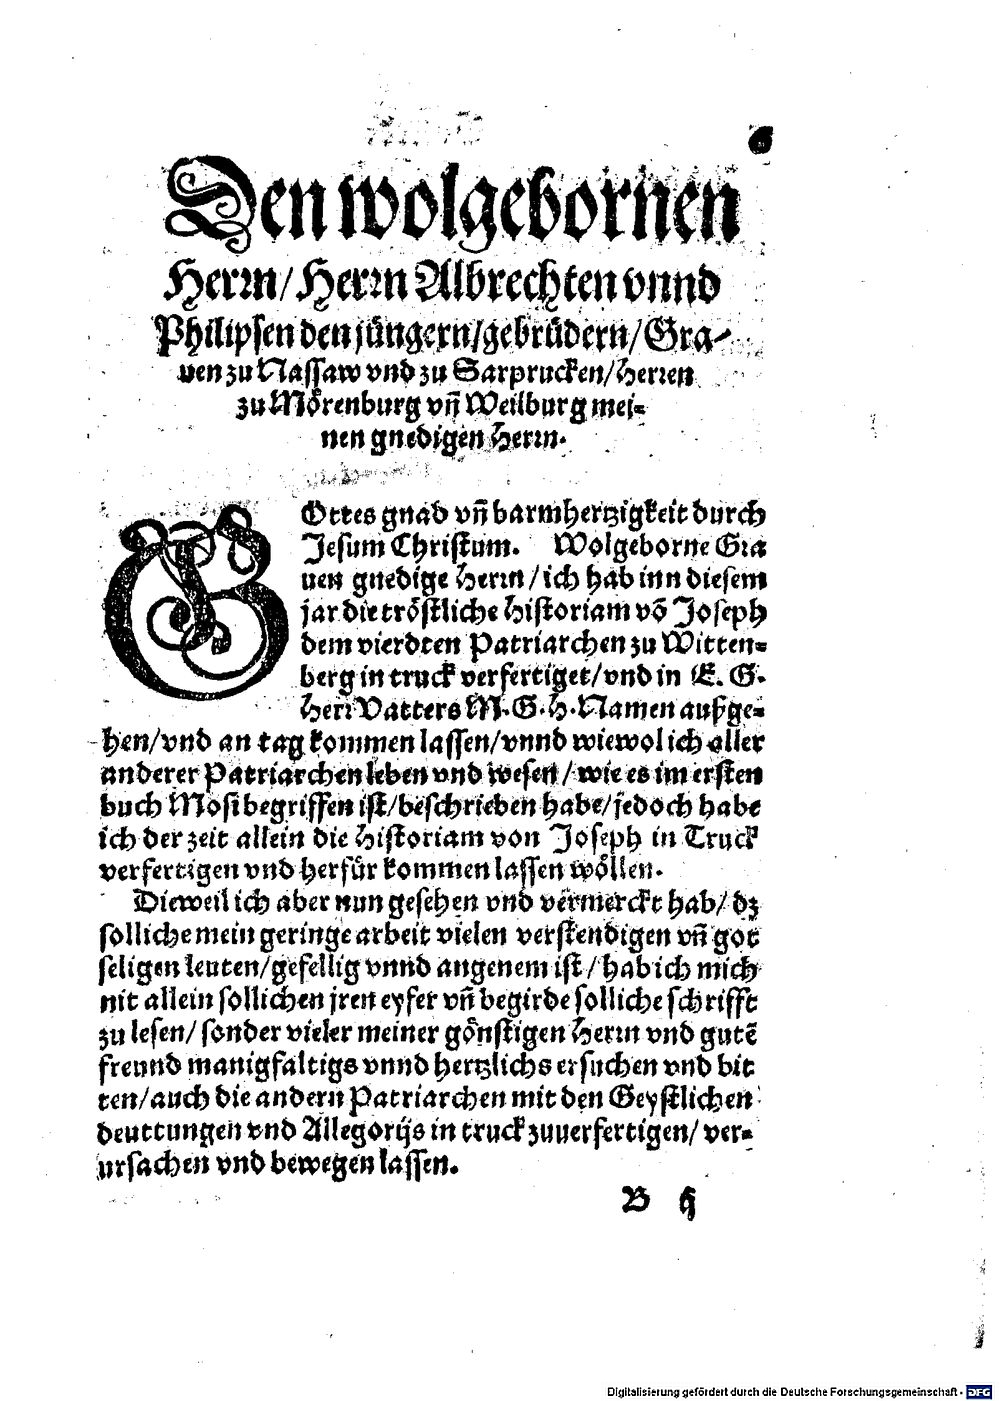 6
Den wolgebornen
Herrn/Herrn Albrechten vnnd
Philipsen den jüngern/gebrüdern/Gra-
uen zu Nassaw vnd zu Sarprucken/Herren
zu Mörenburg vñ Weilburg mei-
nen gnedigen Herrn.
GOttes gnad vñ barmhertzigkeit durch
Jesum Christum. Wolgeborne Gra
uen gnedige Herrn/ich hab inn diesem
jar die tröstliche Historiam vō Joseph
dem vierdten Patriarchen zu Witten-
berg in truck verfertiget/vnd in E. G.
Herr Vatters M. G. H. Namen außge-
hen/vnd an tag kommen lassen/vnnd wiewol ich aller
anderer Patriarchen leben vnd wesen/wie es im ersten
buch Mosi begriffen ist/beschrieben habe/jedoch habe
ich der zeit allein die Historiam von Joseph in Truck
verfertigen vnd herfür kommen lassen wöllen.
Dieweil ich aber nun gesehen vnd vermerckt hab/dz
solliche mein geringe arbeit vielen verstendigen vñ got
seligen leuten/gefellig vnnd angenem ist/hab ich mich
nit allein sollichen jren eyfer vñ begirde solliche schrifft
zu lesen/sonder vieler meiner gönstigen Herrn vnd gutē
freund manigfaltigs vnnd hertzlichs ersuchen vnd bit
ten/auch die andern Patriarchen mit den Geystlichen
deuttungen vnd Allegorijs in truck zuuerfertigen/ver-
ursachen vnd bewegen lassen.
B ij
Digitalisierung gefördert durch die Deutsche Forschungsgemeinschaft - DFG